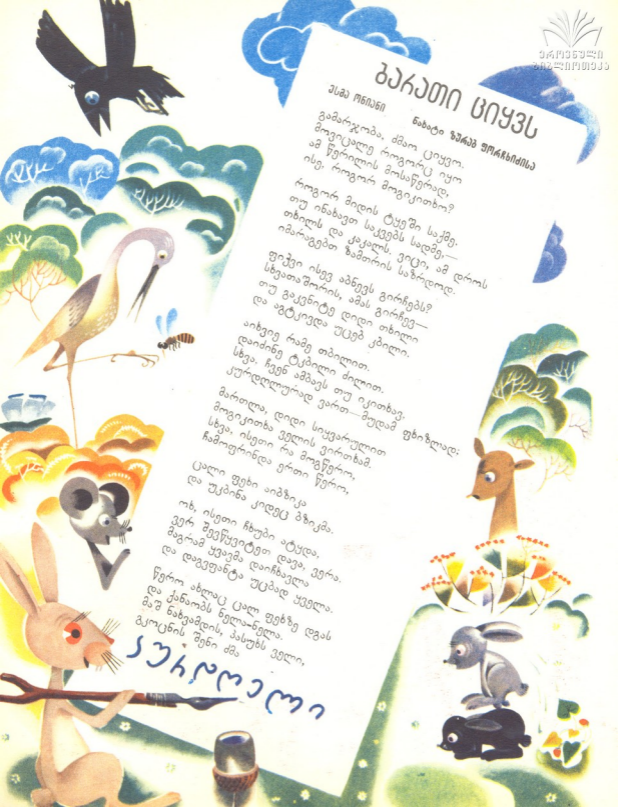 ეროვნული
ბიბლიოთეკა
ბარათი ციყვს
ესმა ონიანი ნახატი ზურაბ ფორჩხიძისა
გამარჯობა, ძმაო ციყვო.
მოვიცალე როგორც იყო
ამ წერილის მოსაწერად,
ისე, როგორ მოგიკითხო?
როგორ მიდის ტყეში საქმე.
თუ ინახავთ საკვებს სადმე,—
თხილს და კაკალს. ვიცი, ამ დროს
იმარაგებთ ზამთრის საზრდოდ.
ფიჭვი ისევ აბნევს გირჩებს?
სხვათაშორის, ამას გირჩევ—
თუ გაკვნიტე დიდი თხილი
და აგტკივდა უცებ კბილი,
აიხვიე რამე თბილით.
დაიძინე ტკბილი ძილით.
სხვა, ჩვენ ამბავს თუ იკითხავ,
კურდღლურად ვართ—მუდამ ფხიზლად;
მართლა, დიდი სიყვარულით
მოგიკითხა ველის ვირთხამ.
სხვა, ისეთი რა მოგწერო,
ჩამოფრინდა ერთი წერო,
ცალი ფეხი აიბზიკა
და უკბინა კიდეც ბზიკმა.
ოხ, ისეთი ჩხუბი ატყდა,
ვერ შევწყვიტეთ დავა, ვერა.
მაგრამ ყვავმა დაიჩხავლა
და დაგვფანტა უცბად ყველა.
წერო ახლაც ცალ ფეხზე დგას
და ქანაობს ნელა-ნელა.
მაშ ნახვამდის, პასუხს ველი,
გკოცნის შენი ძმა
კურდღელი